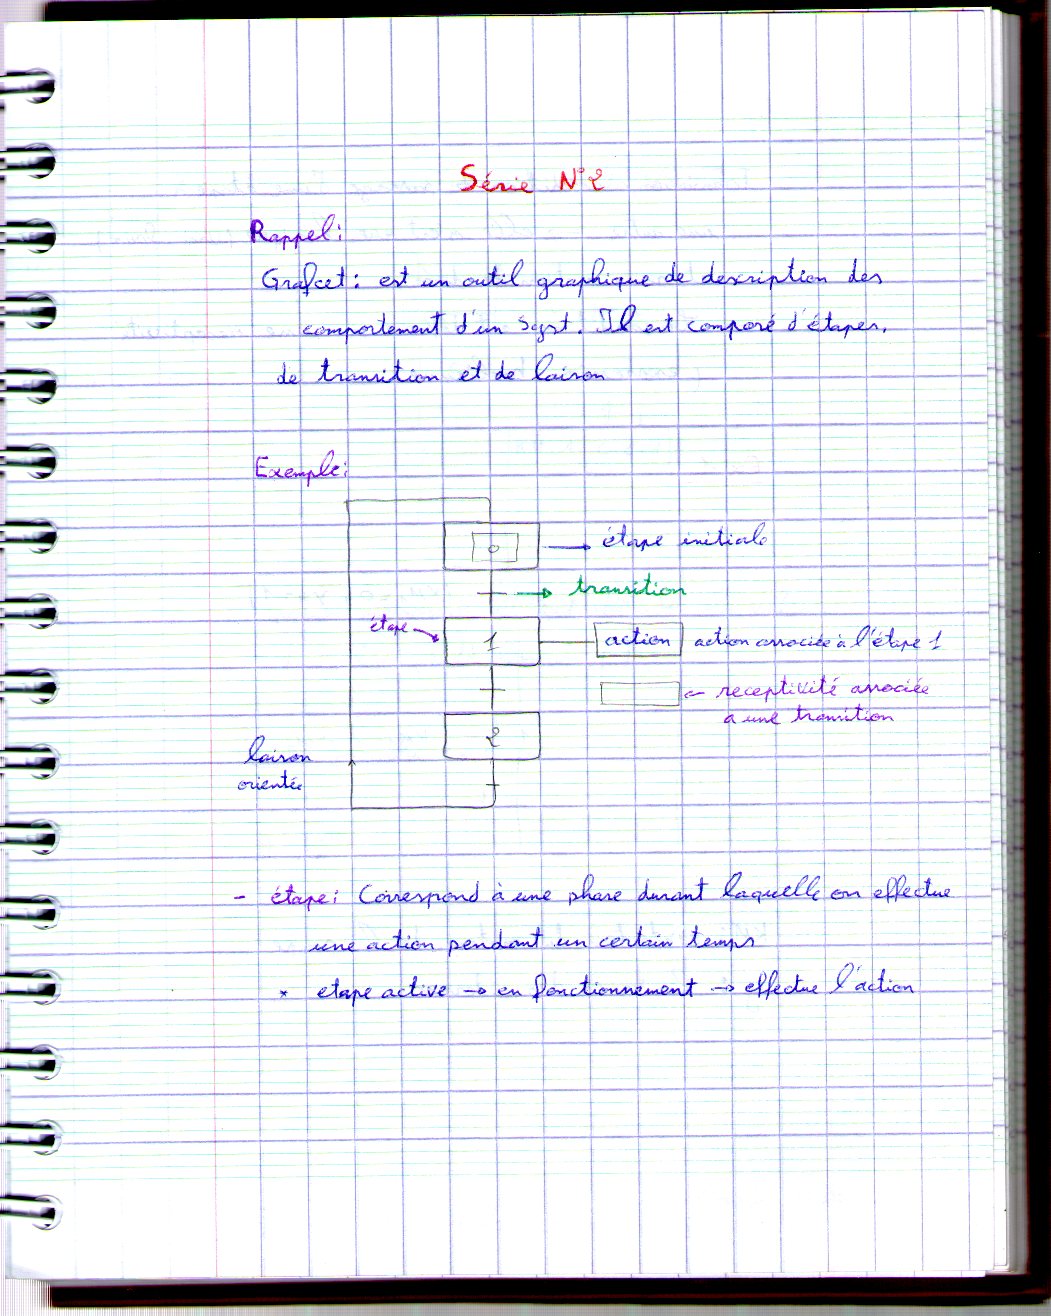 Série N°2
Rappel:
Grafcet: est un outil graphique de description des
comportement d'un Syst. Il est composé d'étapes,
de transition et de laison
Exemple:
0
étape initiale
transition
étape
1
action
action associée à l'étape 1
receptivité associée
a une transition
2
laison
orientée
- étape: Correspond à une phase durant laquelle on effectue
une action pendant un certain temps
* etape active → en fonctionnement → effectue l'action